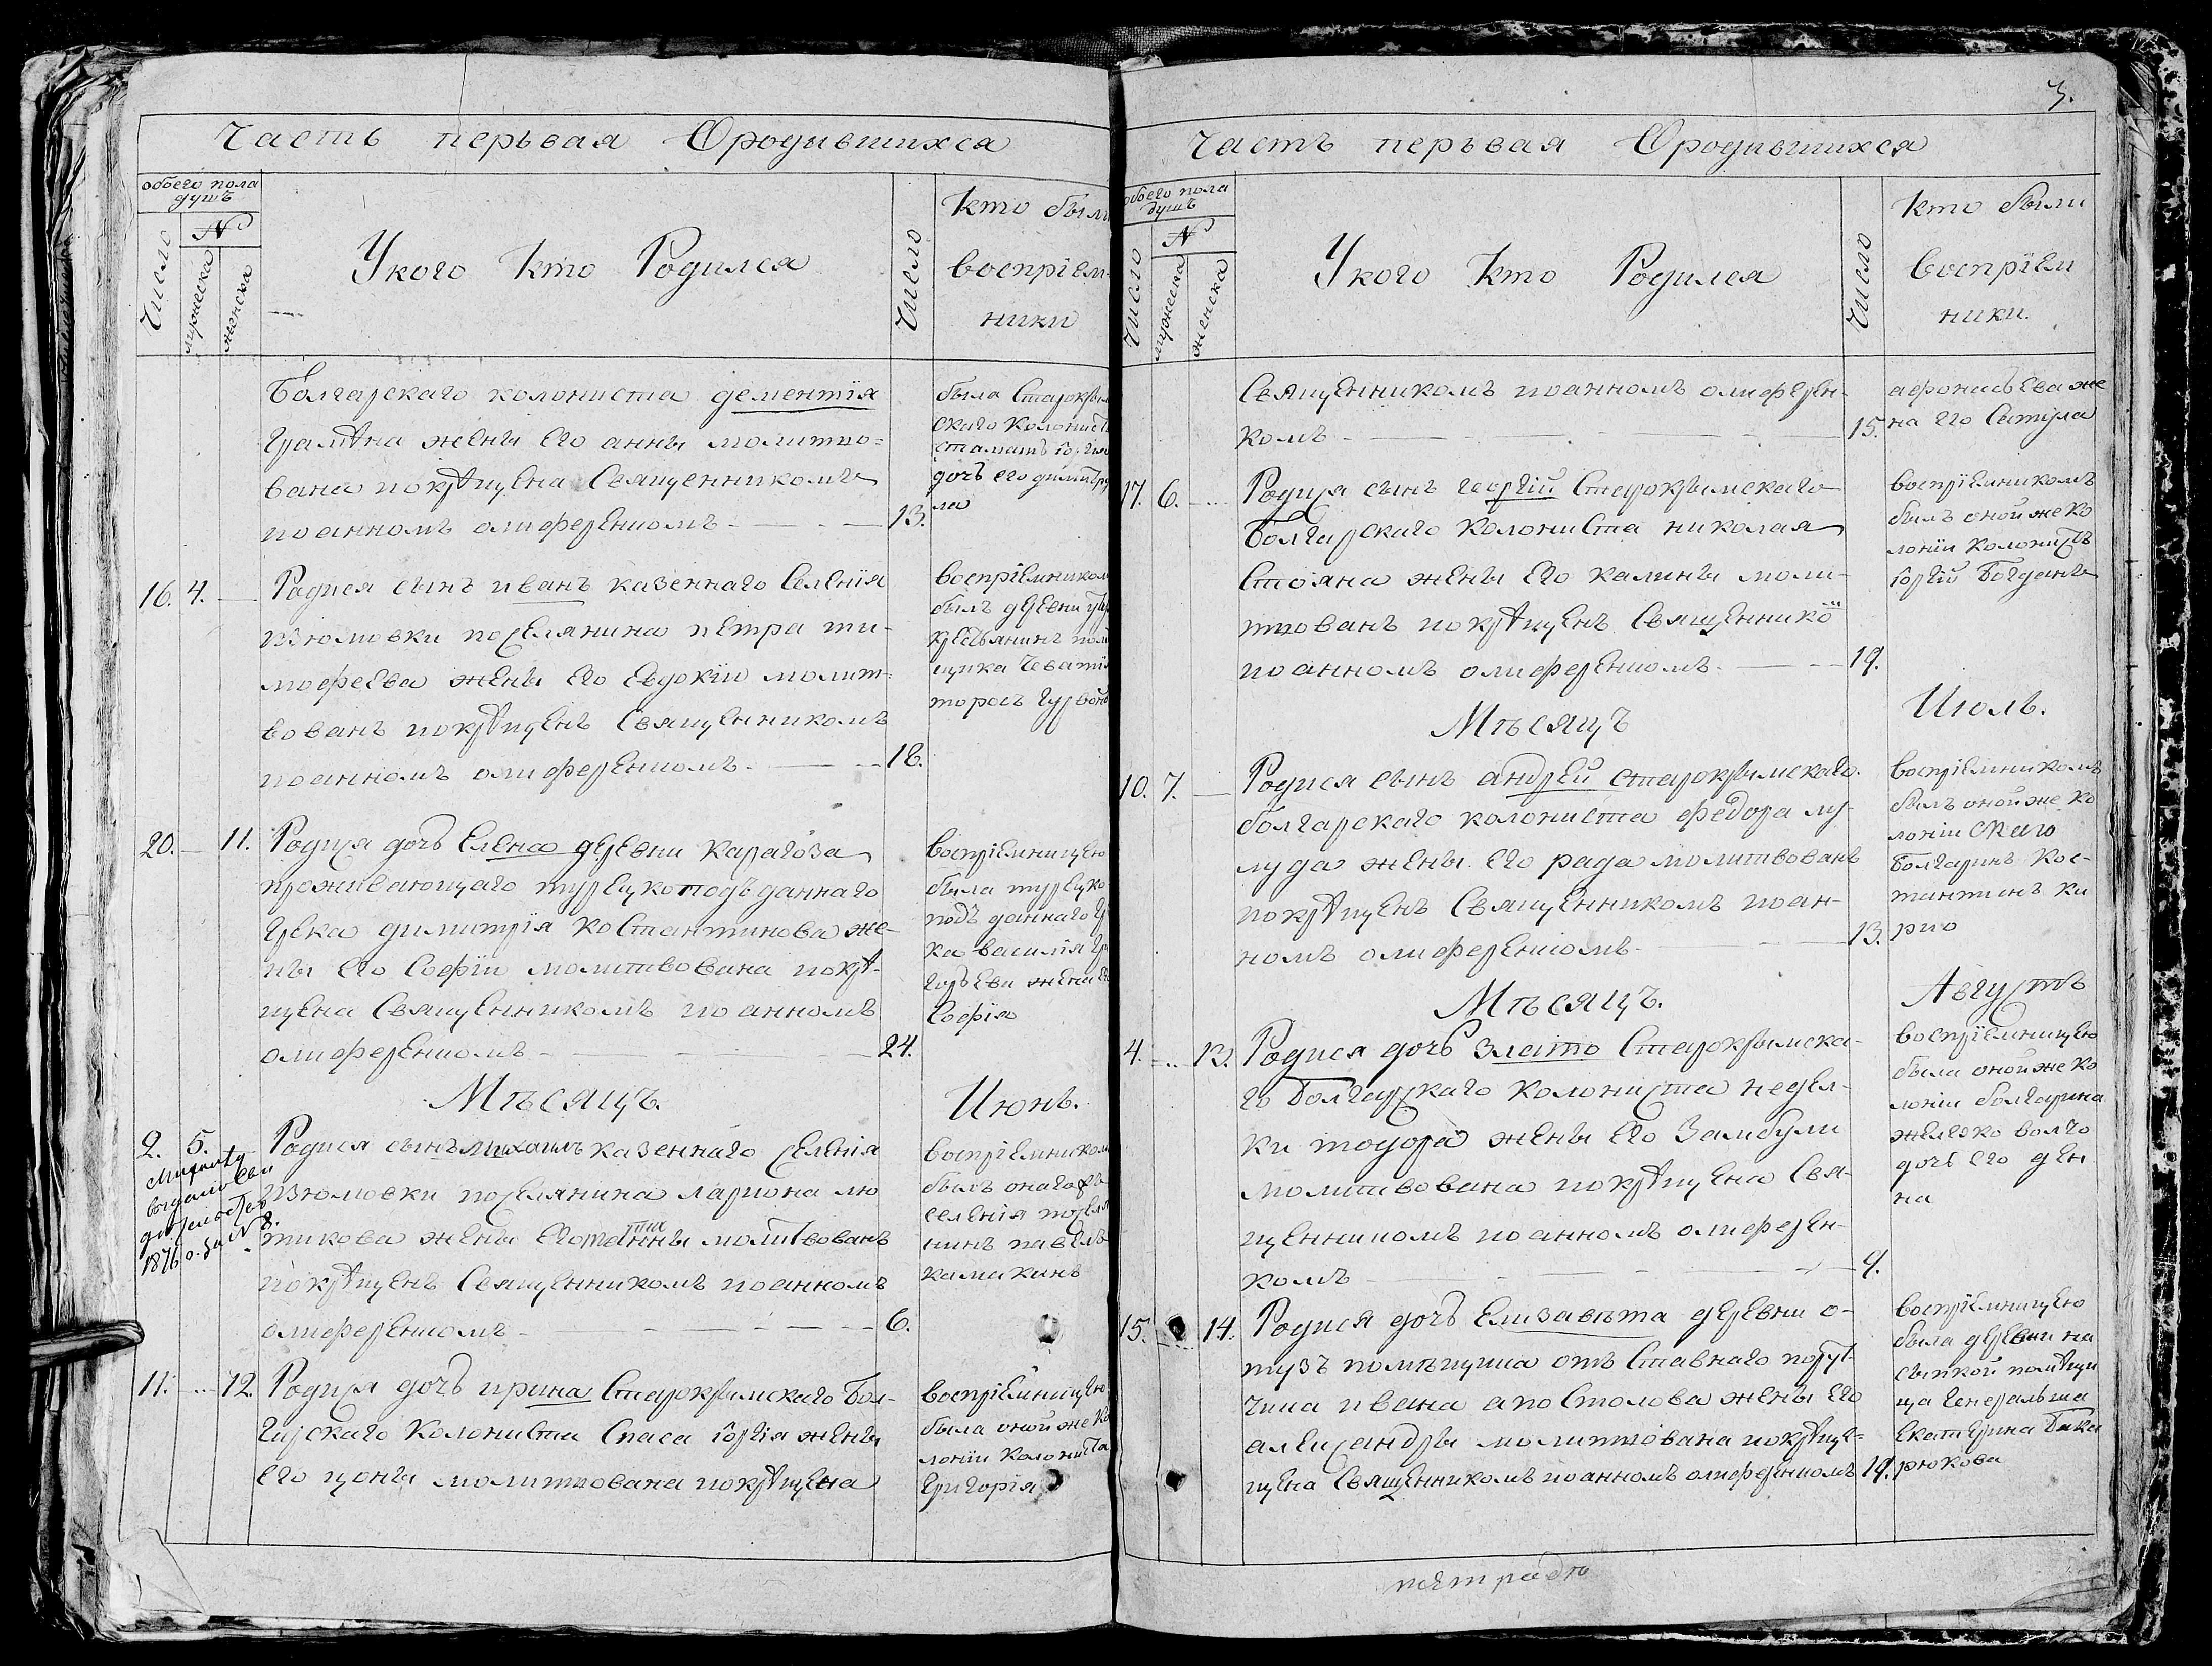 Часть перьвая Ородившихся
обоего пола
душъ
Число
№
мужеска
женска
У кого кто Родился
Число
кто были
воспріем-
ники
Болгарскаго колониста дементія
жены его анны молитво-
вана покрѣщена Священникомъ
иоанномъ олиференкомъ 13.
была Старокрым
скаго колониста
дочь его
16. 4. Родися сынъ иванъ казеннаго Селенія
изюмовки поселянина петра ти-
мофеева жены его евдокіи молит-
вованъ покрѣщенъ Священникомъ
иоанномъ олиференкомъ 18.
воспріемником
былъ деревни
крестьянинъ
20. 11. Родися дочь елена деревни карагоза
проживающаго турецкоподъданнаго
грека димитрія костантинова же-
ны его Софіи молитвована покрѣ-
щена Священникомъ иоанномъ
олиференкомъ 24.
воспріемницею
была турецко
подъ даннаго
ка василія
жена
Софія
Мѣсяцъ. Июнь.
2. 5. Родися сынъ михаилъ казеннаго селенія
изюмовки поселянина лариона лю
тикова жены его молитвованъ
покрѣщенъ Священникомъ иоанномъ
олиференкомъ 6.
1876 о. за № 8.
воспріемником
былъ онагожъ
селенія поселя
нинъ павелъ
камакинъ
11. 12. Родися дочь ирина Старокрымскаго Бол-
гарскаго колониста Спаса іоргія жены
его цонги молитвована покрѣщена
воспріемницею
была оной же ко
лоніи колониста
Григорія
3.
Часть перьвая Ородившихся
обоего пола
душъ
Число
№
мужеска
женска
У кого кто Родился
Число
кто были
воспріем
ники.
Священникомъ иоанномъ олиферен-
комъ 15.
афонасьева же
на его Сатула
17. 6. Родися сынъ георгій Старокрымскаго
Болгарскаго колониста николая
Стояна жены его калины моли-
твованъ покрѣщенъ Священнико м
иоанномъ олиференкомъ 19.
воспріемникомъ
былъ оной же ко
лоніи колонистъ
іоргій Богданъ
Мѣсяцъ Июль.
10. 7. Родися сынъ андрей старокрымскаго
болгарскаго колониста федора му-
луда жены его рада молитвованъ
покрѣщенъ Священникомъ иоан-
номъ олиференкомъ 13.
воспріемникомъ
былъ оной же ко
лоніи
Болгаринъ кос-
тантинъ ки
рио
Мѣсяцъ. Августъ
4. 13. Родися дочь злато Старокрымска-
го Болгарскаго колониста недел-
ки тодора жены его Замбули
молитвована покрѣщена Свя-
щенникомъ иоанномъ олиферен-
комъ 9.
воспріемницею
была оной же ко
лоніи болгарина
железко волчо
дочь его ден
на
15. 14. Родися дочь елизавѣта деревни о-
тузъ помѣщика отъ Ставнаго порут-
чика ивана апостолова жены его
александры молитвована покрѣще-
щена Священникомъ иоанномъ олиференкомъ 19.
воспріемницею
была деревни на
сыпкой помѣщи
ца генеральша
екатерина Бака
рюкова